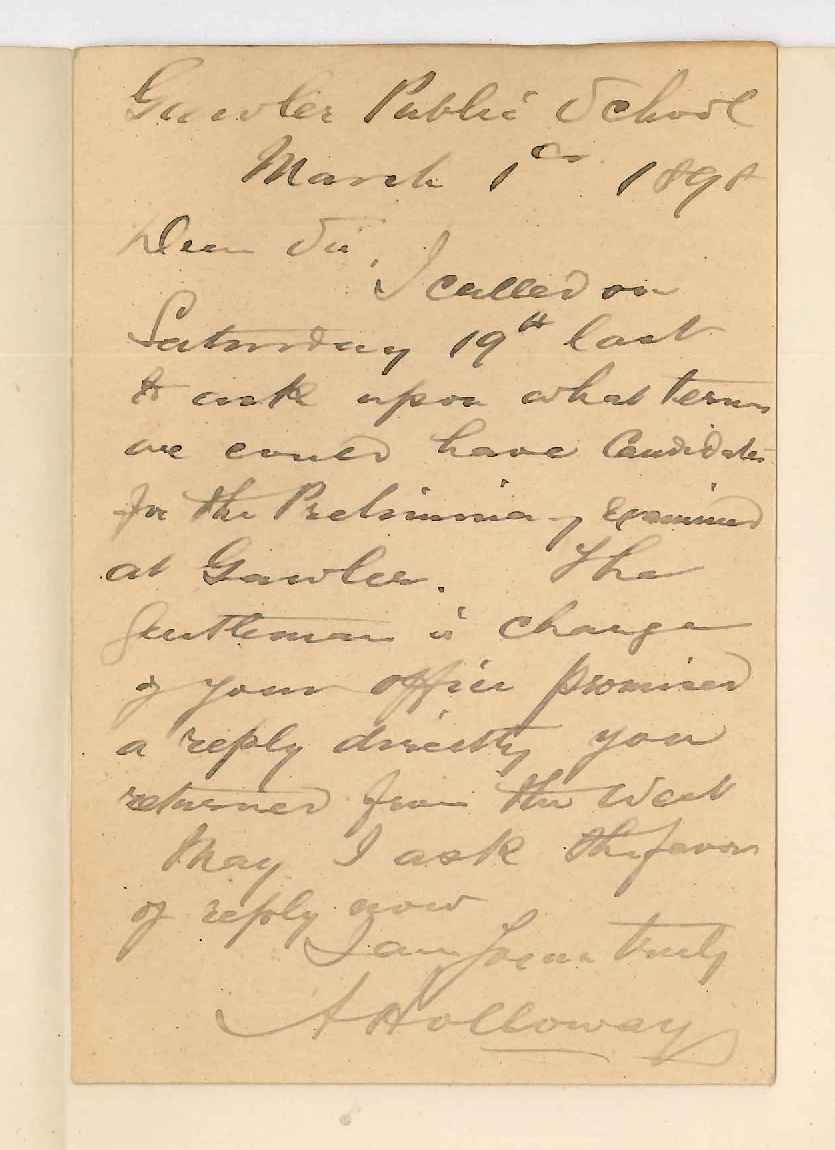 Gawler Public School
March 1st 1898
Dear Sir,
I called on
Saturday 19th last
to ask upon what terms
we could have Candidates
for the Preliminary examined
at Gawler. The
gentleman in charge
of your office promised
a reply directly you
returned from the West
May I ask the favor
of reply now
I am Yours truly
A Holloway